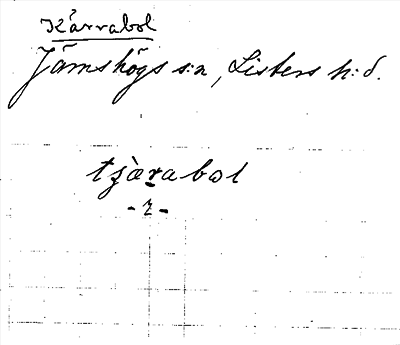 Kärrabol
Jämshögs s:n, Listers h:d.
tʂæ̀rabωl
-r-